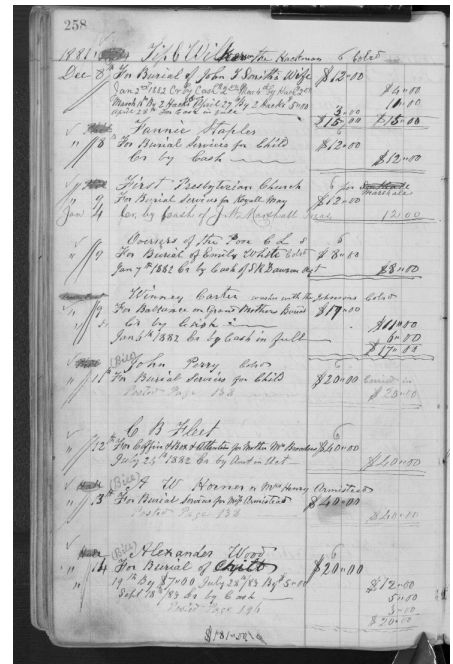 258
1881 the Hackman Cold
Dec 8th For Burial of John T Smiths Wife $12"00
Jan 2nd 1882 Cr by Cash $4"00
March By 2 Hacks April 27th By 2 Hacks 5"00 11"00
April 28th in full 3"00
$15"00 $15"00
Fannie Staples 6
" 8th For Burial Services for Child $12"00
Cr by Cash $12"00
First Presbyterian Church 6 for Marshall
" 9 For Burial Services for Royall May $12"00
Jan 4 Cr. by Cash of J. W. Marshall Treas 12"00
Overseers of the Poor C L S 6
" 9 For Burial of Emily White Cold $8"00
Jan 7th 1882 Cr by Cash of S K Dawson Agt $8"00
Winney Carter works with the Johnsons Cold
" 9 For Ballance on Grand Mothers Burial $17"00
" Cr by Cash $11"00
Jan 5th 1882 Cr by Cash in full 6"00
$17"00
(Bill) John Perry Cold
" 11th For Burial Services for Child $20"00 Carried in
Posted Page 138 $20"00
C B Fleet 6
" 12th For Coffin & Box & Attention for Mother Mrs $60"00
July 25th 1882 Cr by Amt in Act $60"00
A W Horner or Mrs Henry Armistead
" 13th For Burial Services for Mrs Armistead $40"00
Posted Page 138 $40"00
(Bill) Alexander Wood 6
" 14 For Burial of Child $20"00
19th By $7"00 July 28th/83 By $5"00 $12"00
Sept 18th/83 Cr by Cash 5"00
Posted Page 196 3"00
$20"00